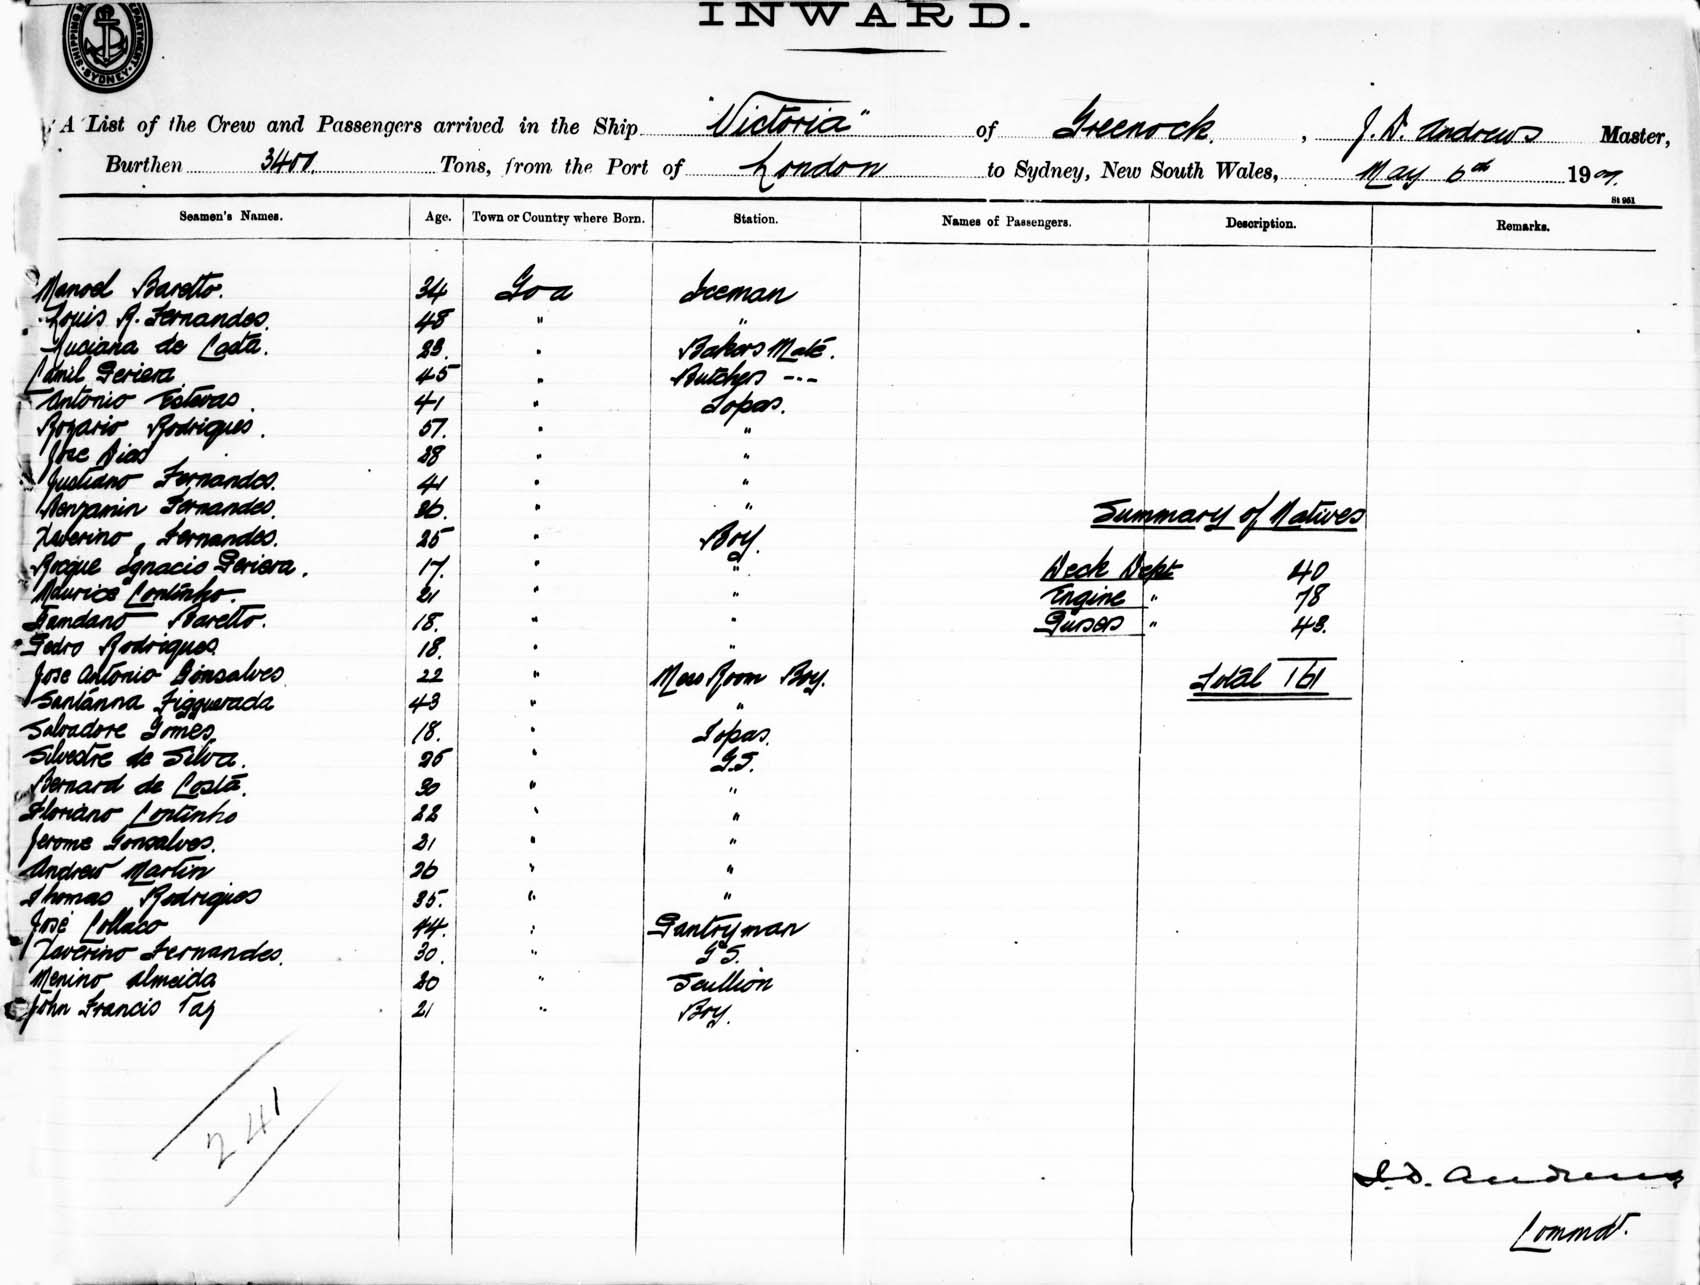 SHIPPING DEPARTMENT SYDNEY
INWARD.
A List of the Crew and Passengers arrived in the Ship "Victoria" of Greenock, J. D. Andrews Master,
Burthen 3401. Tons, from the Port of London to Sydney, New South Wales, May 6th 1907.
St 951
Seamen's Names. Age. Town or Country where Born. Station. Names of Passengers. Description. Remarks.
Manoel Baretto. 34 Goa Iceman
Louis R. Fernandes. 48 " "
Luciana de Costa. 23. " Bakers Mate.
Camil Periera 45 " Butchers -"-
Antonio Estevas. 41 " Topas.
Rozario Rodrigues. 57. " "
Jose Dias 28 " "
Justiano Fernandes. 41 " "
Benjamin Fernandes. 26. " "
Summary of Natives
Xaverino Fernandes. 25 " Boy.
Rocque Ignacio Periera. 17. " "
Deck Dept 40
Maurice Continho. 21 " "
Engine " 78
Baretto. 18. " "
Pursers " 43.
Pedro Rodrigues. 18. " "
Jose Antonio Gonsalves 22 " Mess Room Boy.
Total 161
Santanna Figguerada 43 " "
Salvadore Gomes 18. " Topas.
Silvestre de Silva. 25 " G.S.
Bernard de Costa. 30 " "
Floriano Continho 22 " "
Jerome Gonsalves. 21 " "
Andrew Martin 26 " "
Thomas Rodrigues 35. " "
José Collaco 44. " Pantryman
Xaverino Fernandes. 30. " G.S.
Menino Almeida 20 " Scullion
John Francis 21 " Boy.
241
J. D. Andrews
Commdr.